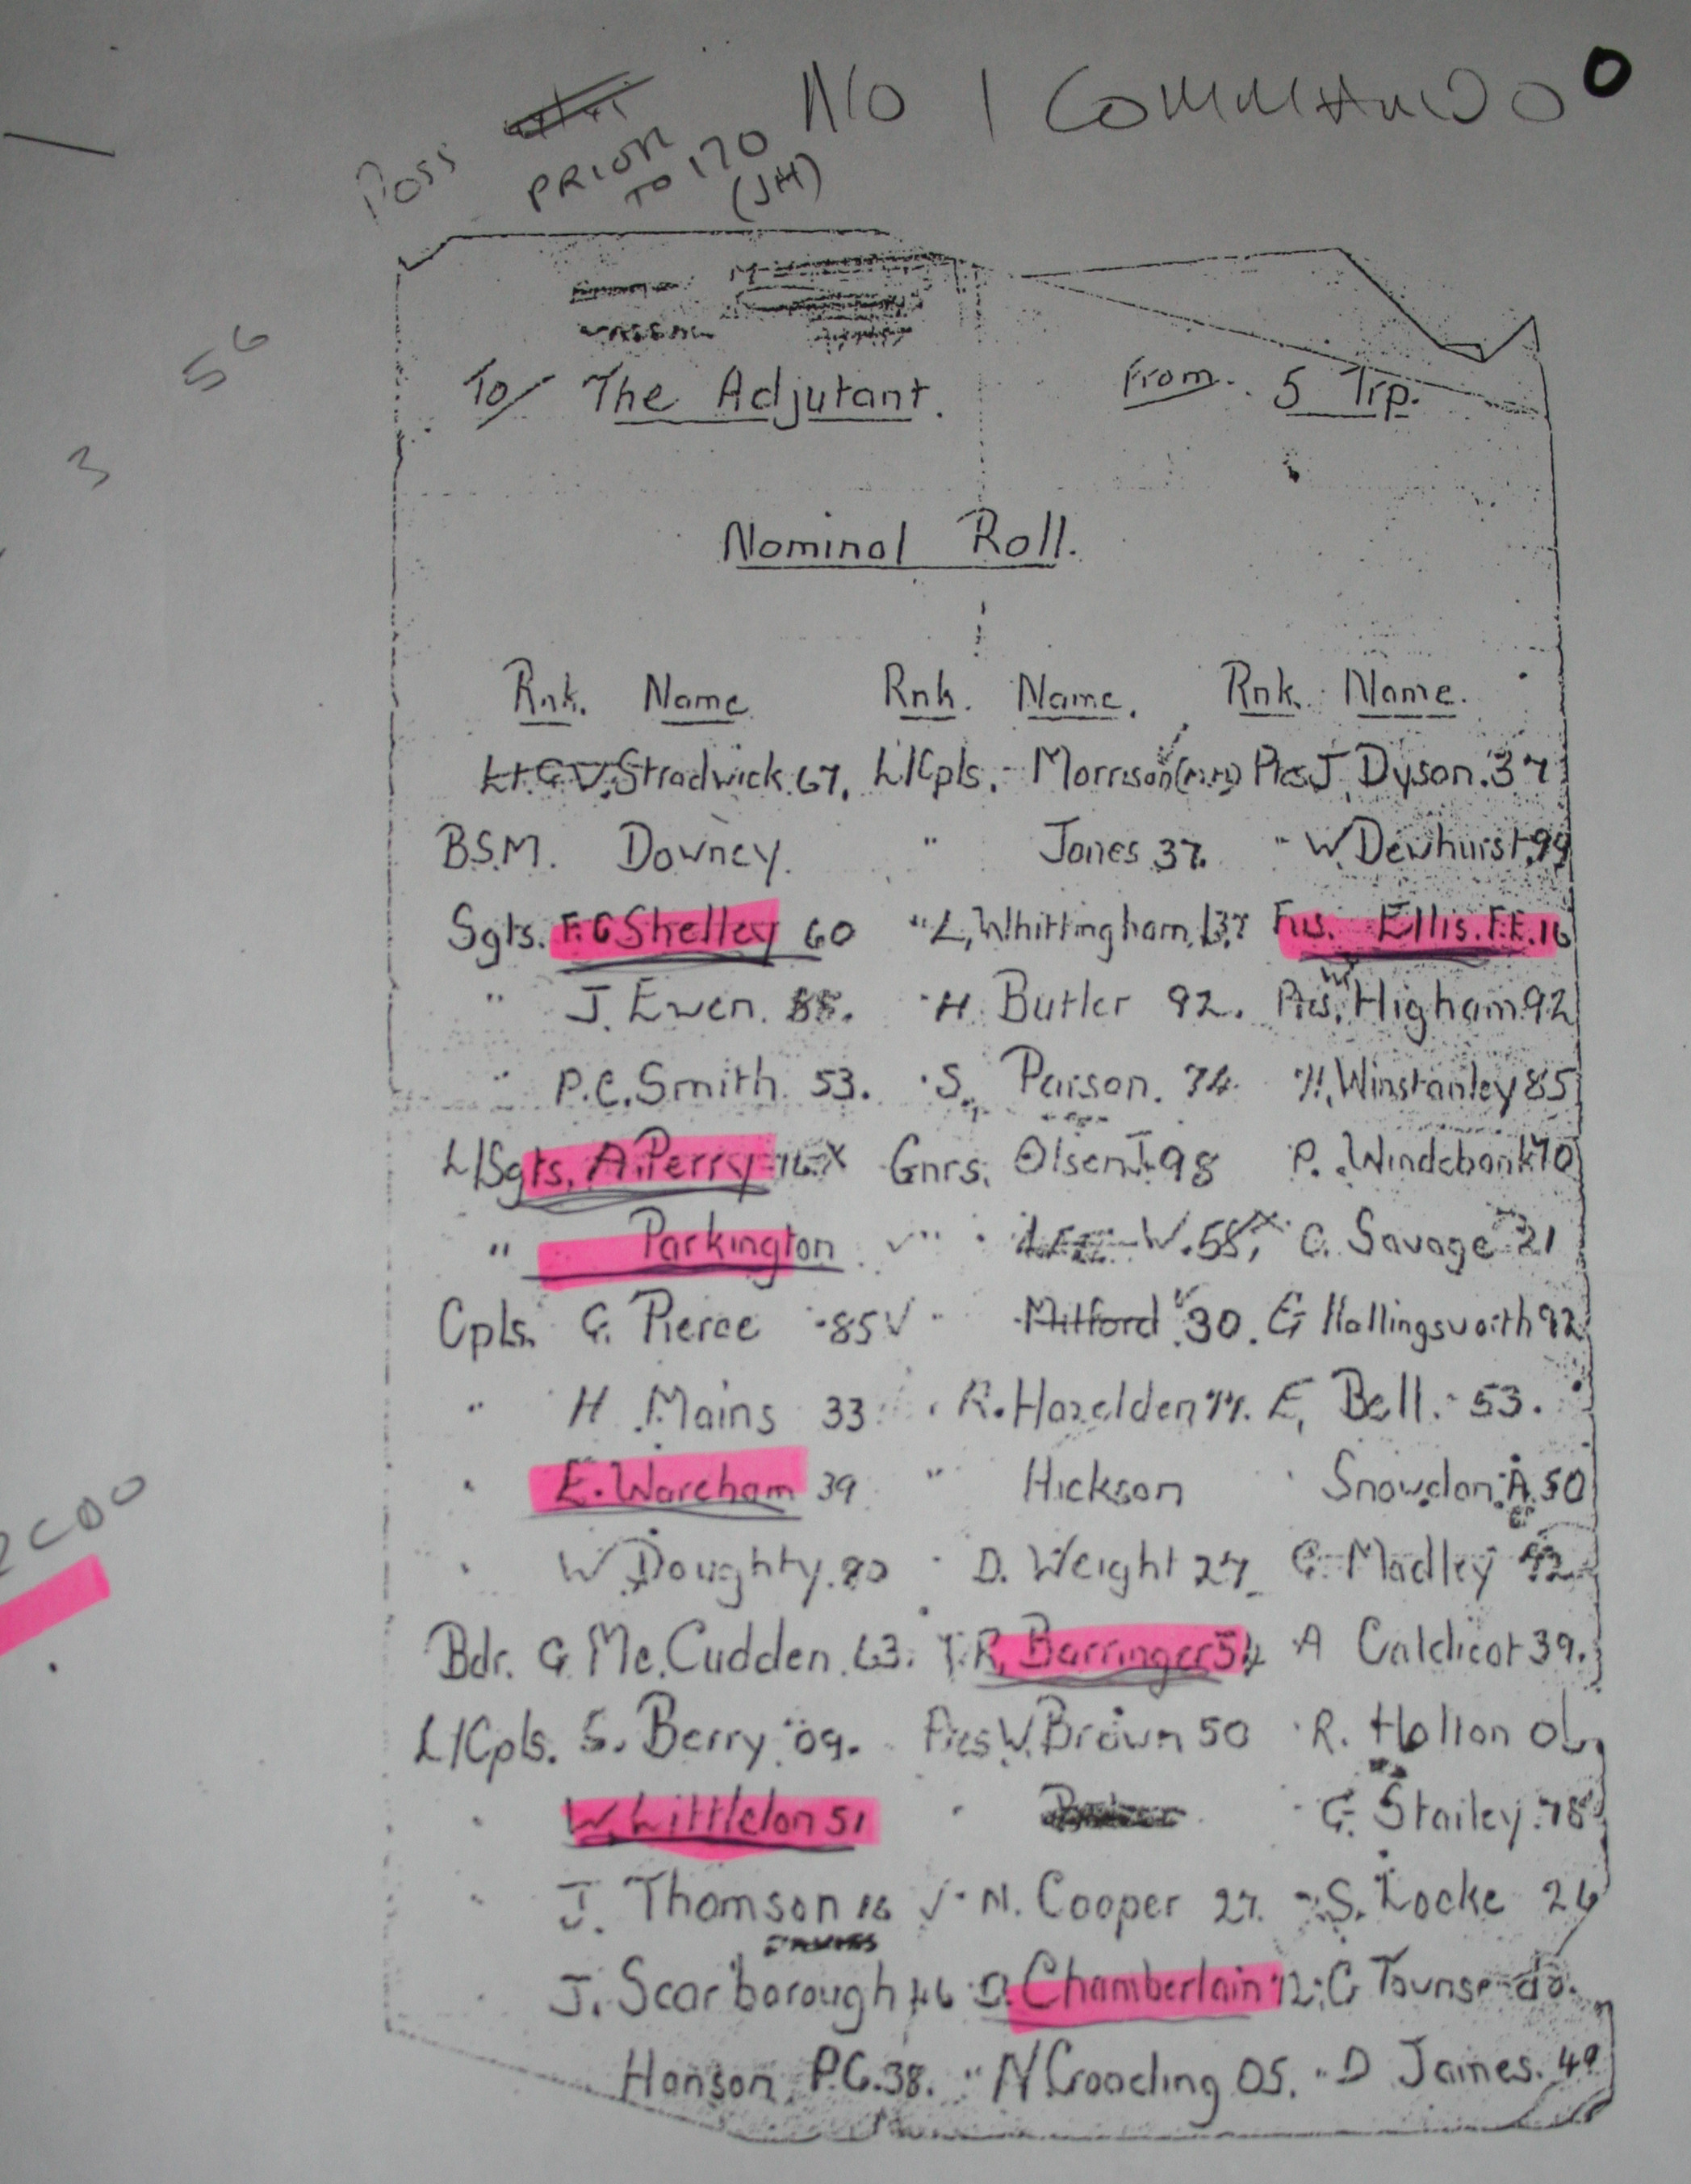 NO 1 COMMANDO
Poss PRIOR TO 170 (JH)
56
To/ The Adjutant. From. 5 Trp.
3
Nominal Roll.
Rnk. Name Rnk. Name. Rnk. Name.
Lt. G.V. Stradwick 67. L/Cpls. - Morrison Ptes J. Dyson. 37
B.S.M. Downey. " Jones 37. " W. Dewhurst. 99
Sgts. F.G Shelley 60 " L. Whittingham. 137 Fus. Ellis. F.E. 16
" J. Ewen. 88. " H. Butler 92. Ptes. W Higham 92
" P.C. Smith. 53. " S. Parson. 74. H. Winstanley 85
L/Sgts. A. Perry 76 X Gnrs. Olsen J. 98 P. Windebank 70
" Parkington " W. 58, C. Savage 21
Cpls. G. Pierce 85 Mitford 30. G Hollingsworth 92
" H. Mains 33 " R. Hazelden 77. E. Bell. 53.
" E. Wareham 39 " Hickson " Snowdon. A. 50
" W. Doughty. 80 " D. Weight 27 G. Madley 42
Bdr. G Mc. Cudden. 63. T.R. Barringer 54 A Caldicot 39.
L/Cpls. S. Berry 09. Ptes W. Brown 50 R. Holton
" W. Littleton 51 " G. Stailey. 78
2000
" J. Thomson 16 " N. Cooper 27. S. Locke 26
" J. Scarborough 46 D. Chamberlain 72. G
Hanson P.G. 38. " N. Gooding 05. " D James. 49